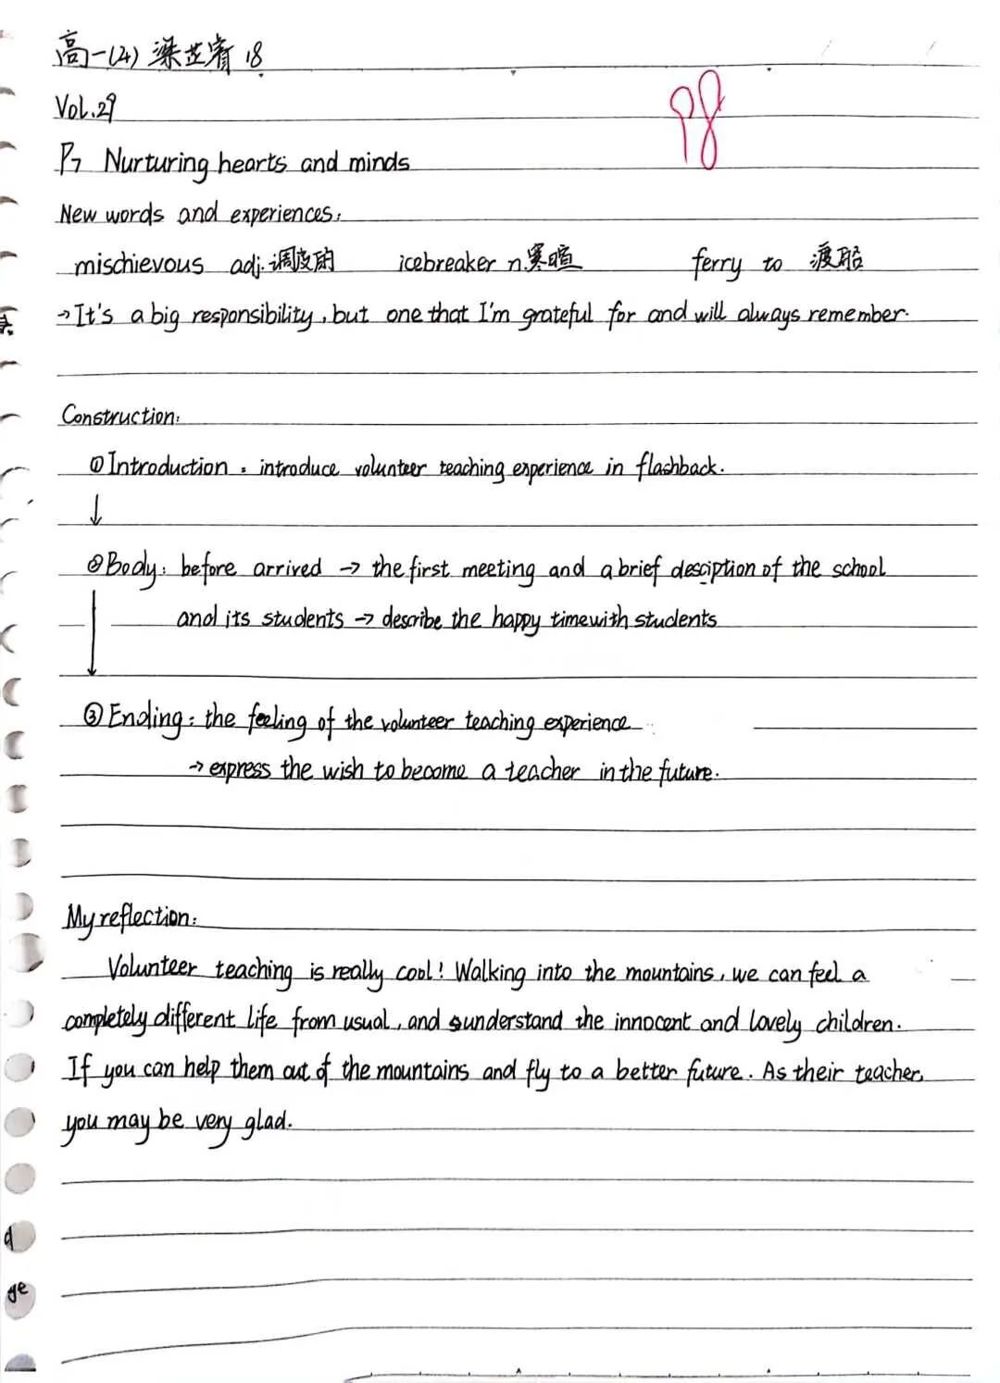 高一(4) 梁芷宥 18
Vol.29
98
P7 Nurturing hearts and minds
New words and experiences:
mischievous adj.调皮的 icebreaker n寒暄 ferry to 渡船
→It's a big responsibility, but one that I'm grateful for and will always remember.
Construction:
①Introduction: introduce volunteer teaching experience in flashback.
↓
②Body: before arrived → the first meeting and a brief desciption of the school
and its students → describe the happy time with students
↓
③Ending: the feeling of the volunteer teaching experience
→ express the wish to become a teacher in the future.
My reflection:
Volunteer teaching is really cool! Walking into the mountains, we can feel a
completely different life from usual, and understand the innocent and lovely children.
If you can help them out of the mountains and fly to a better future. As their teacher,
you may be very glad.
d
ge